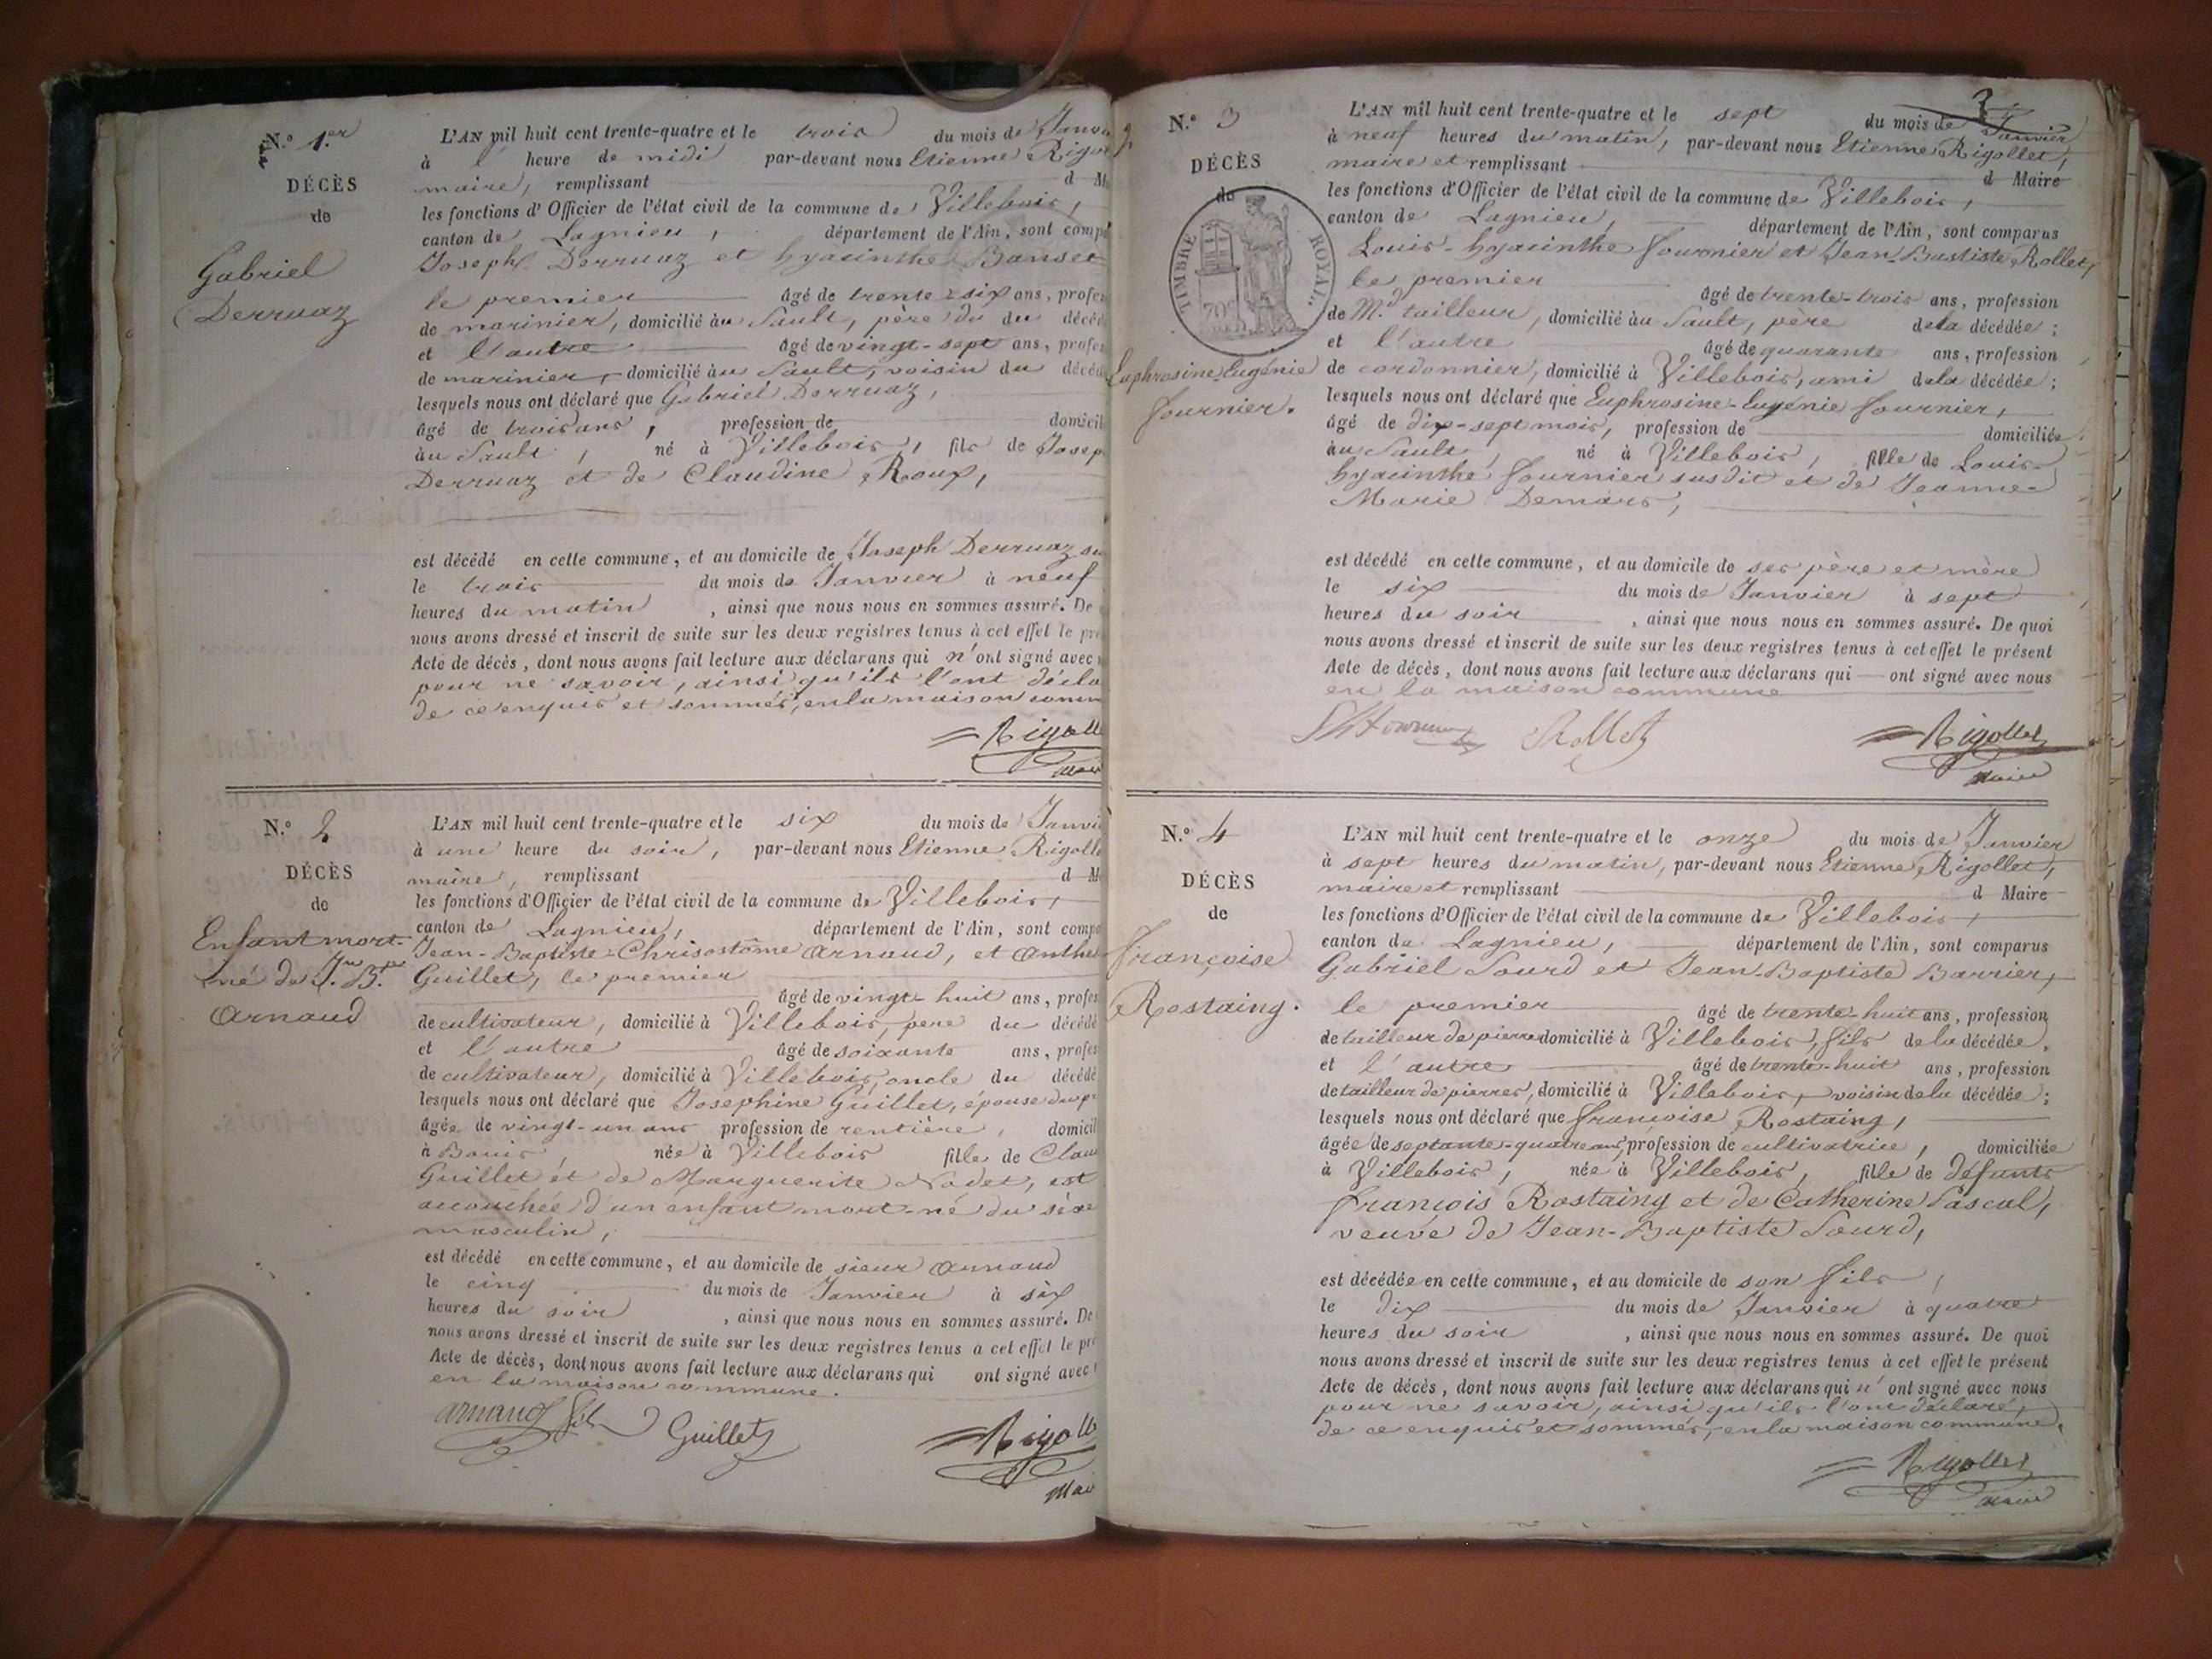 N.º 1.er
DÉCÈS
de
Gabriel
Derruaz
L'AN mil huit cent trente-quatre et le trois du mois de Janv
à l' heure de midi par-devant nous Etienne Rigo
maire, remplissant d M
les fonctions d'Officier de l'état civil de la commune de Villebois,
canton de Lagnieu, département de l'Ain, sont comp
Joseph Derruaz et hyacinthe Banset
le premier âgé de trente-six ans, profes
de marinier, domicilié au Sault, père du du décéd
et l'autre âgé de vingt-sept ans, profes
de marinier, domicilié au Sault, voisin du décéd
lesquels nous ont déclaré que Gabriel Derruaz,
âgé de trois ans, profession de domicil
au Sault, né à Villebois, fils de Josep
Derruaz et de Claudine Roux,
est décédé en cette commune, et au domicile de Joseph Derruaz su
le trois du mois de Janvier à neuf
heures du matin, ainsi que nous nous en sommes assuré. De
nous avons dressé et inscrit de suite sur les deux registres tenus à cet effet le pré
Acte de décès, dont nous avons fait lecture aux déclarans qui n'ont signé avec
pour ne savoir, ainsi qu'ils l'ont décla
de ce enquis et sommés, en la maison comm
Rigoll
mair
N.º 2
DÉCÈS
de
Enfant mort-
né de J.n B.te
Arnaud
L'AN mil huit cent trente-quatre et le six du mois de Janvi
à une heure du soir, par-devant nous Etienne Rigolle
maire, remplissant d M
les fonctions d'Officier de l'état civil de la commune de Villebois,
canton de Lagnieu, département de l'Ain, sont comp
Jean-Baptiste-Chrisostôme Arnaud, et Anthe
Guillet, le premier
âgé de vingt-huit ans, profes
de cultivateur, domicilié à Villebois, père du décédé
et l'autre âgé de soixante ans, profes
de cultivateur, domicilié à Villebois, oncle du décédé
lesquels nous ont déclaré que Josephine Guillet, épouse du p
âgée de vingt-un ans profession de rentière, domicil
à Bouis, née à Villebois fille de Clau
Guillet et de Marguerite Nodet, est
accouchée d'un enfant mort-né du sèxe
masculin,
est décédé en cette commune, et au domicile de sieur Arnaud
le cinq du mois de Janvier à six
heures du soir, ainsi que nous nous en sommes assuré. De
nous avons dressé et inscrit de suite sur les deux registres tenus à cet effet le pré
Acte de décès, dont nous avons fait lecture aux déclarans qui ont signé avec
en la maison commune.
Arnaud fils Guillet
Rigoll
Mai
3
N.º 3
DÉCÈS
de
TIMBRE ROYAL
70c
Euphrosine-Eugénie
fournier.
L'AN mil huit cent trente-quatre et le sept du mois de Janvier
à neuf heures du matin, par-devant nous Etienne Rigollet,
maire et remplissant d Maire
les fonctions d'Officier de l'état civil de la commune de Villebois,
canton de Lagnieu, département de l'Ain, sont comparus
Louis-hyacinthe fournier et Jean-Bastiste Rollet,
le premier âgé de trente-trois ans, profession
de M.d tailleur, domicilié au Sault, père de la décédée;
et l'autre âgé de quarante ans, profession
de cordonnier, domicilié à Villebois, ami de la décédée;
lesquels nous ont déclaré que Euphrosine-Eugénie fournier,
âgé de dix-sept mois, profession de domiciliée
au Sault, né à Villebois, fille de Louis-
hyacinthe fournier susdit et de Jeanne-
Marie Demars,
est décédé en cette commune, et au domicile de ses père et mère
le six du mois de Janvier à sept
heures du soir, ainsi que nous nous en sommes assuré. De quoi
nous avons dressé et inscrit de suite sur les deux registres tenus à cet effet le présent
Acte de décès, dont nous avons fait lecture aux déclarans qui ont signé avec nous
en la maison commune
Rollet
Rigollet
maire
N.º 4
DÉCÈS
de
françoise
Rostaing.
L'AN mil huit cent trente-quatre et le onze du mois de Janvier
à sept heures du matin, par-devant nous Etienne Rigollet,
maire et remplissant d Maire
les fonctions d'Officier de l'état civil de la commune de Villebois,
canton de Lagnieu, département de l'Ain, sont comparus
Gabriel Sourd et Jean-Baptiste Barrier,
le premier âgé de trente-huit ans, profession
de tailleur de pierre domicilié à Villebois, fils de la décédée,
et l'autre âgé de trente-huit ans, profession
de tailleur de pierres, domicilié à Villebois, voisin de la décédée;
lesquels nous ont déclaré que françoise Rostaing,
âgée de septante-quatre ans, profession de cultivatrice, domiciliée
à Villebois, née à Villebois, fille de défunts
françois Rostaing et de Catherine Pascal,
veuve de Jean-Baptiste Sourd,
est décédée en cette commune, et au domicile de son fils,
le dix du mois de Janvier à quatre
heures du soir, ainsi que nous nous en sommes assuré. De quoi
nous avons dressé et inscrit de suite sur les deux registres tenus à cet effet le présent
Acte de décès, dont nous avons fait lecture aux déclarans qui n'ont signé avec nous
pour ne savoir, ainsi qu'ils l'ont déclaré,
de ce enquis et sommés, en la maison commune.
Rigollet
maire